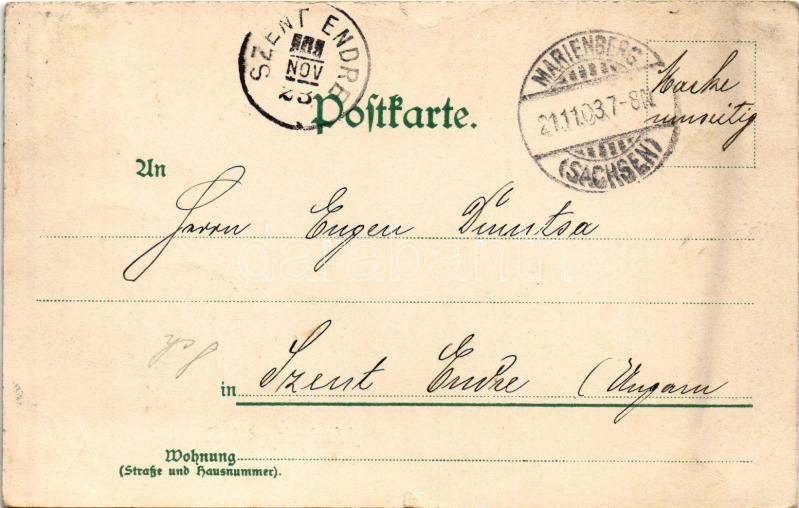 SZENT ENDRE
NOV
23
MARIENBERG
21.11.03.7-8N.
(SACHSEN)
Marke
umseitig
Postkarte.
An
Herrn Eugen Dumtsa
darabanth
in Szent Endre (Ungarn
Wohnung
(Straße und Hausnummer).